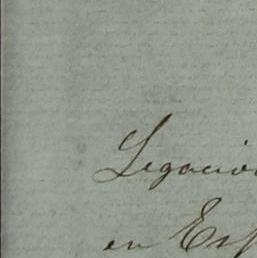 Legación
en Esp